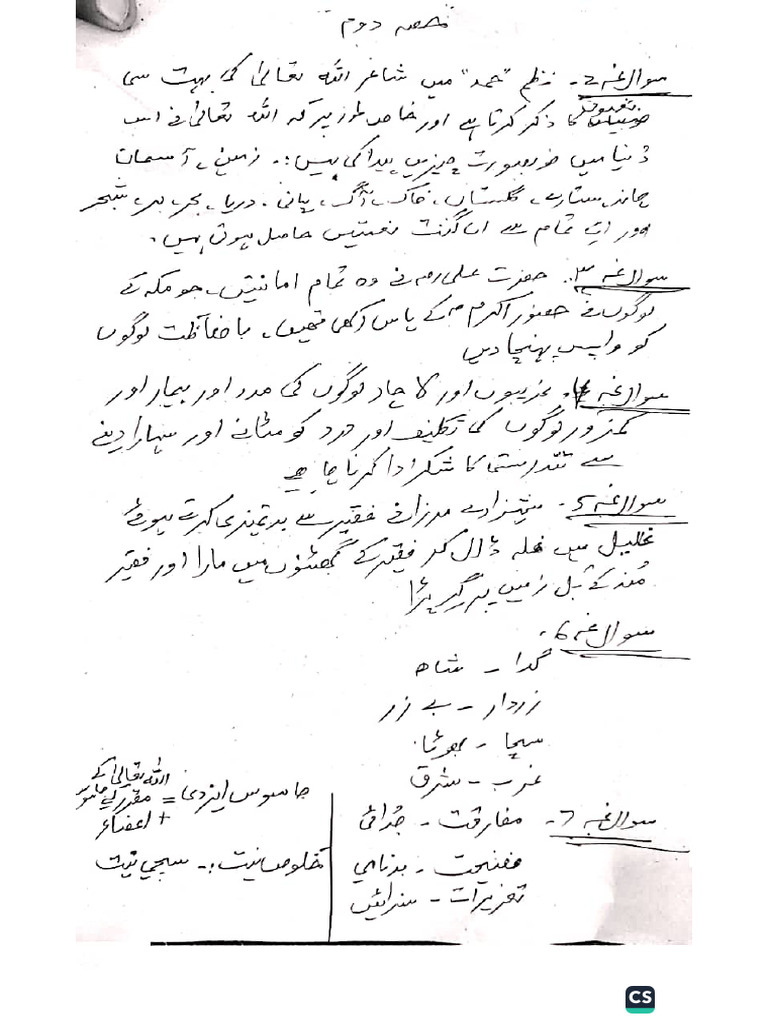 حصہ دوم
سوال نمبر 2۔ نظم "حمد" میں شاعر اللہ تعالیٰ کی بہت سی
نعمتوں کا ذکر کرتا ہے اور خاص طور پر کہ اللہ تعالیٰ نے اس
دُنیا میں خوبصورت چیزیں پیدا کی ہیں:۔ زمین، آسمان
چاند ستارے، گلستاں، خاک، آگ، پانی، دریا، بحر، بر، شجر
اور ان تمام سے ان گنت نعمتیں حاصل ہوتی ہیں۔
سوال نمبر ۳۔ حضرت علی رض نے وہ تمام امانتیں، جو مکہ کے
لوگوں نے حضور اکرم ص کے پاس رکھی تھیں، باحفاظت لوگوں
کو واپس پہنچا دیں
سوال نمبر 4۔ غریبوں اور لاچار لوگوں کی مدد اور بیمار اور
کمزور لوگوں کی تکلیف اور درد کو مٹانے اور سہارا دینے
سے تندرستی کا شکر ادا کرنا چاہیے
سوال نمبر 5۔ شہزادے مرزا نے فقیر سے بدتمیزی کرتے ہوئے
غلیل میں غلہ ڈال کر فقیر کے گھٹنوں میں مارا اور فقیر
مُنہ کے بَل زمین پر گر پڑا
سوال نمبر 6۔
گدا - شاہ
زردار - بے زر
سچا - جھوٹا
غرب - شرق
سوال نمبر 7۔ مفارقت - جُدائی
فضیحت - بدنامی
تعزیرات - سزائیں
جاسوس ایزدی = اللہ تعالیٰ کے
مقرر کیے جاسوس
+ اعضاء
خلوص نیت:۔ سچی نیت
CS